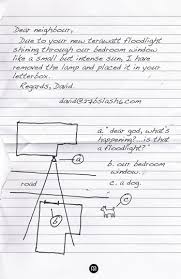 Dear neighbour,
Due to your new terawatt floodlight
shining through our bedroom window
like a small but intense sun, I have
removed the lamp and placed it in your
letterbox.
Regards, David
david@27bslash6.com
a. "dear god, what's
happening?...is that
a floodlight?"
a
b. our bedroom
window.
road
c. a dog.
c
b